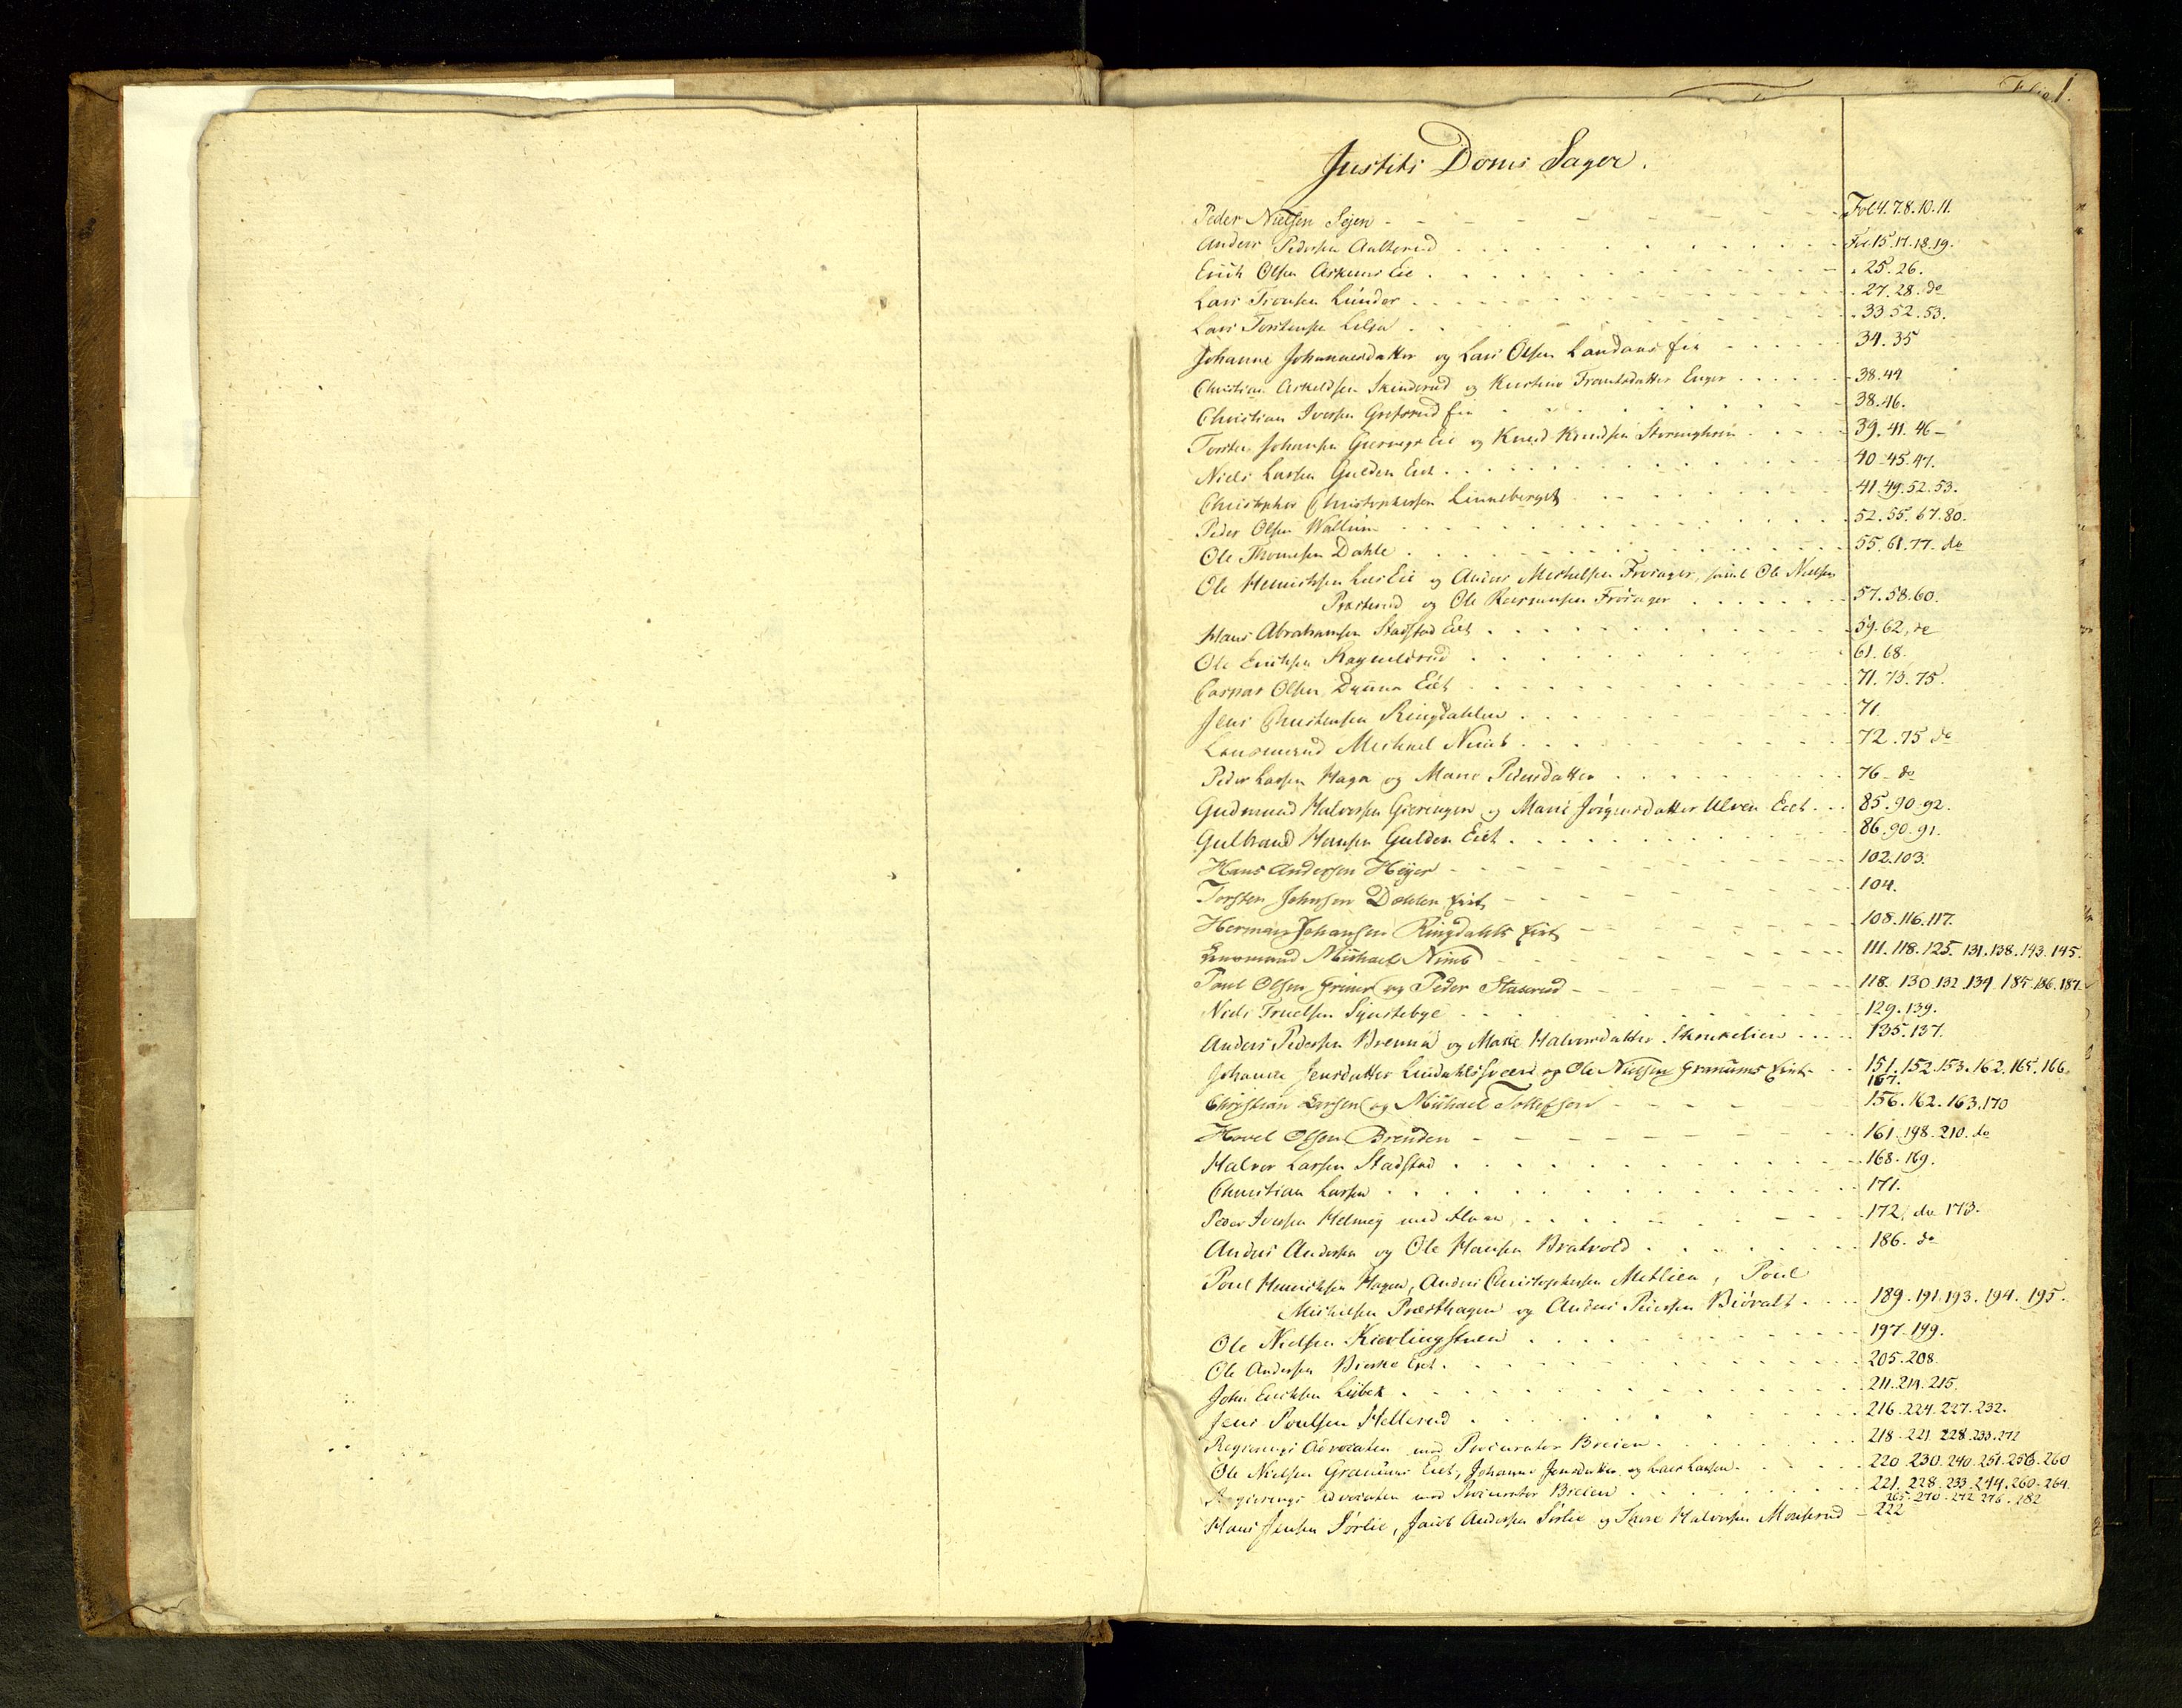 Folio 1.
Justits Doms Sager.
Peder Nielsen Sejen Fol 4. 7. 8. 10. 11.
Anders Pedersen Fol. 15. 17. 18. 19.
Erich Olsen Askeims Eie 25. 26.
Lars Tronsen Lunder 27. 28. do
Lars Torstensen Lilja 33. 52. 53.
Johanne Johannesdatter og Lars Olsen Landaas Eie 34. 35
Christian Askeldsen Skinderud og Kirstine Frantsdatter Enger 38. 44
Christian Iversen Grefsrud Eie 38. 46.
Torsten Johansen Eie og Knud Knudsen 39. 41. 46
Niels Larsen Gulden Eiet 40. 45. 47.
Christopher Christophersen Linneberget 41. 49. 52. 53.
Peder Olsen Wallum 52. 55. 67. 80.
Ole Thomesen Dahle 55. 61. 77. do
Ole Henrichsen Eie og Anders Michelsen Frøsager, samt Ole Nielsen
Præsterud og Ole Rasmusen Frøsager 57. 58. 60.
Hans Abrahamsen Stadstad Eiet 59. 62, do
Ole Erichsen Ragnildrud 61. 68.
Casper Olsen Dynna Eiet 71. 73. 75.
Jens Christensen Ringdahlen 71.
Lensmand Michael Nimb 72. 75 do
Peder Larsen Haga og Marie Pedersdatter 76 do
Gudmund Halvorsen Gieringen og Marie Jørgensdatter Ulven Eiet 85. 90. 92.
Gulbrand Hansen Gulden Eiet 86. 90. 91.
Hans Andersen Høyer 102. 103.
Torsten Johnsen Dahlen Eiet 104.
Herman Johansen Ringdahls Eiet 108. 116. 117.
Lensmand Michael Nimb 111. 118. 125. 131. 138. 143. 145.
Poul Olsen Griner og Peder Staxrud 118. 130. 132. 134. 185. 186. 187.
Niels Truelsen Synstebye 129. 139.
Anders Pedersen Brenna og Marie Halvorsdatter 135. 137.
Johanne Jensdatter og Ole Nielsen Granums Eiet 151. 152. 153. 162. 165. 166.
167.
Christian Larsen og Michael Tollefsen 156. 162. 163. 170
Hovel Olsen Brenden 161. 198. 210. do
Halvor Larsen Stadstad 168. 169.
Christian Larsen 171.
Peder Iversen Helmey med flere 172, do 173.
Anders Andersen og Ole Hansen Bratvold 186. do
Poul Henrichsen Hagen, Anders Christophersen Metlien, Poul
Michelsen Præsthagen og Anders Pedersen Biørvalt 189. 191. 193. 194. 195.
Ole Nielsen Kierlingstuen 197. 199.
Ole Andersen Bierke Eiet 205. 208.
John Erichsen Lybek 211. 214. 215.
Jens Poulsen Hellerud 216. 224. 227. 232.
Regierings Advocaten mod Procurator Breien 218. 221. 228. 233. 272
Ole Nielsen Granums Eiet, Johanne Jensdatter og Lars Larsen 220. 230. 240. 251. 256. 260
Regierings Advocaten mod Procurator Breien 221. 228. 233. 244. 260. 264.
265. 270. 272. 276. 282
Hans Jensen Sørlie, Jacob Andersen Sørlie og Halvorsen 222